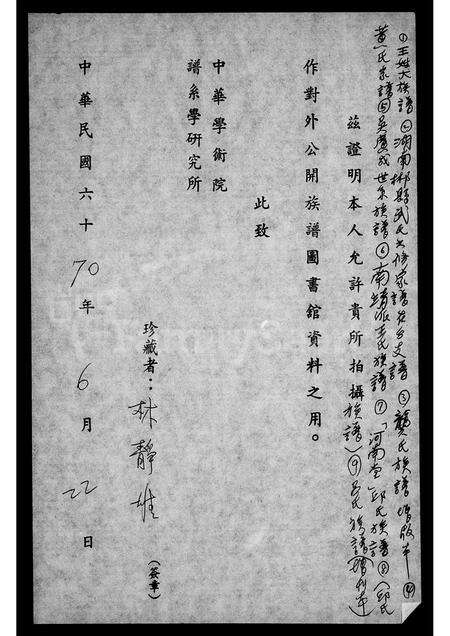 ①王姓大族譜②湖南郴縣武氏六修家譜在台支譜③龔氏族譜增版本④
黃氏家譜⑤吳慶成世系族譜⑥南靖派王氏族譜⑦「河南堂」邱氏族譜⑧(邱氏
族譜)⑨呂氏族譜(增刊本)
茲證明本人允許貴所拍攝
作對外公開族譜圖書館資料之用。
此致
中華學術院
譜系學研究所
珍藏者：林靜雄(簽章)
中華民國六十70年6月22日